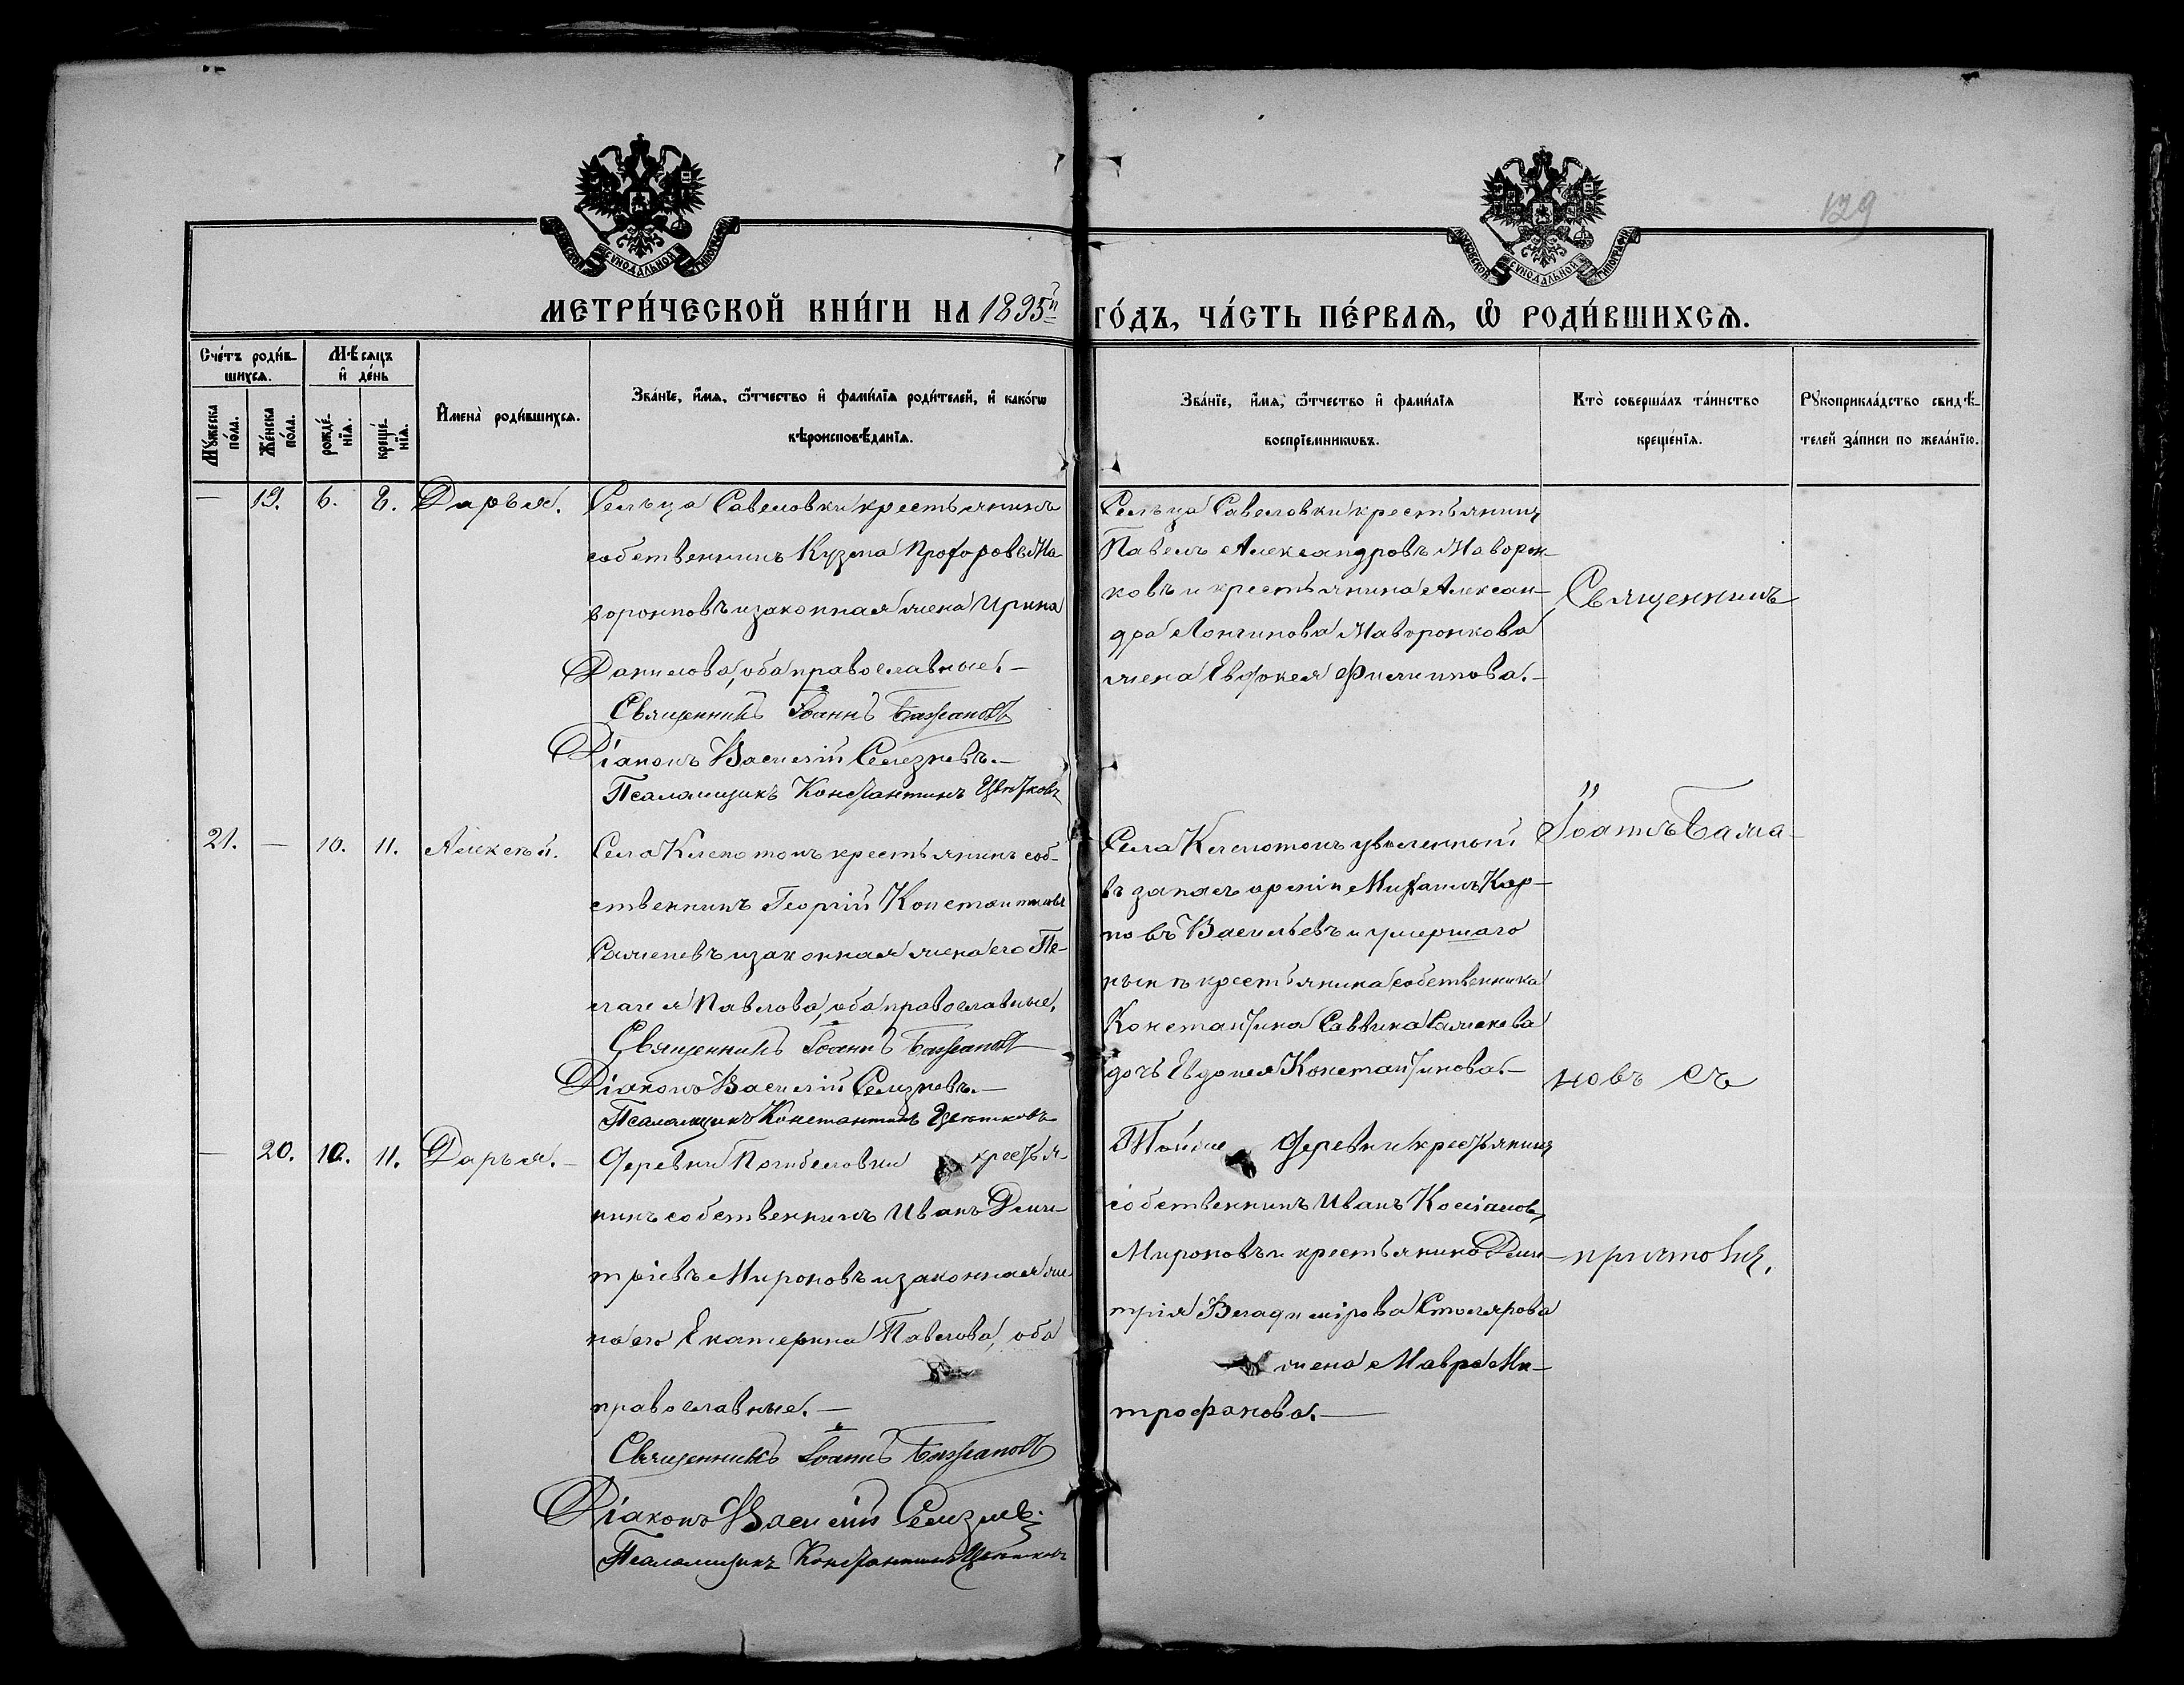 129
МОСКОВСКОЙ СѴНОДАЛЬНОЙ ТИПОГРАФІИ
МОСКОВСКОЙ СѴНОДАЛЬНОЙ ТИПОГРАФІИ
МЕТРИ́ЧЕСКОЙ КНИ́ГИ НА 1895й ГО́ДЪ, ЧА́СТЬ ПЕ́РВАЯ, Ѡ РОДИ́ВШИХСЯ.
Сче́тъ роди́в-
шихся.
Му́жеска по́ла.
Же́нска по́ла.
Мѣ́сяцъ
и де́нь
рожде́-
нїя.
креще́-
нїя.
Имена̀ роди́вшихся.
Зва́нїе, и́мя, ѻ́тчество и фами́лїя роди́телей, и како́гѡ
вѣроисповѣ́данїя.
Зва́нїе, и́мя, ѻ́тчество и фами́лїя
воспрїе́мникѡвъ.
Кто̀ соверша́лъ та́инство
креще́нїя.
Рꙋкоприкла́дство свидѣ́-
телей за́писи по жела́нїю.
— 19. 6. 8. Дарья.
Сельца Савеловки крестьянинъ
собственникъ Кузма Прохоровъ Ма-
воронковъ и законная жена Ирина
Данилова, оба православные. —
Священникъ Іоаннъ
Діаконъ Василій Селезневъ. —
Псаломщикъ Константинъ Цвѣтковъ
Сельца Савеловки крестьянинъ
Павелъ Александровъ Маворон-
ковъ и крестьянина Алексан-
дра Лонгинова Маворонкова
жена Евдокея Филиппова. —
Священникъ
Іоаннъ
21. — 10. 11. Алексѣй.
Села Клекотокъ крестьянинъ соб-
ственникъ Георгій Константиновъ
и законная жена его Пе-
лагея Павлова, оба православные.
Священникъ Іоаннъ
Діаконъ Василій Селезневъ. —
Псаломщикъ Константинъ Цвѣтковъ
Села Клекотокъ уволенный
въ запасъ арміи Михаилъ Кар-
повъ Васильевъ и умершаго
нынѣ крестьянина собственника
Константина Саввина
дочь Евдокея Константинова. —
новъ съ
— 20. 10. 11. Дарья. —
Деревни крестья-
нинъ собственникъ Иванъ Дми-
тріевъ Мироновъ и законная же-
на его Екатерина Павлова, оба
православные. —
Священникъ Іоаннъ
Діаконъ Василій Селезневъ.
Псаломщикъ Константинъ Цвѣтковъ
Той же деревни крестьянинъ
собственникъ Иванъ
Мироновъ и крестьянина Дми-
трія Владимірова Столярова
жена Мавра Ми-
трофанова. —
причтомъ.